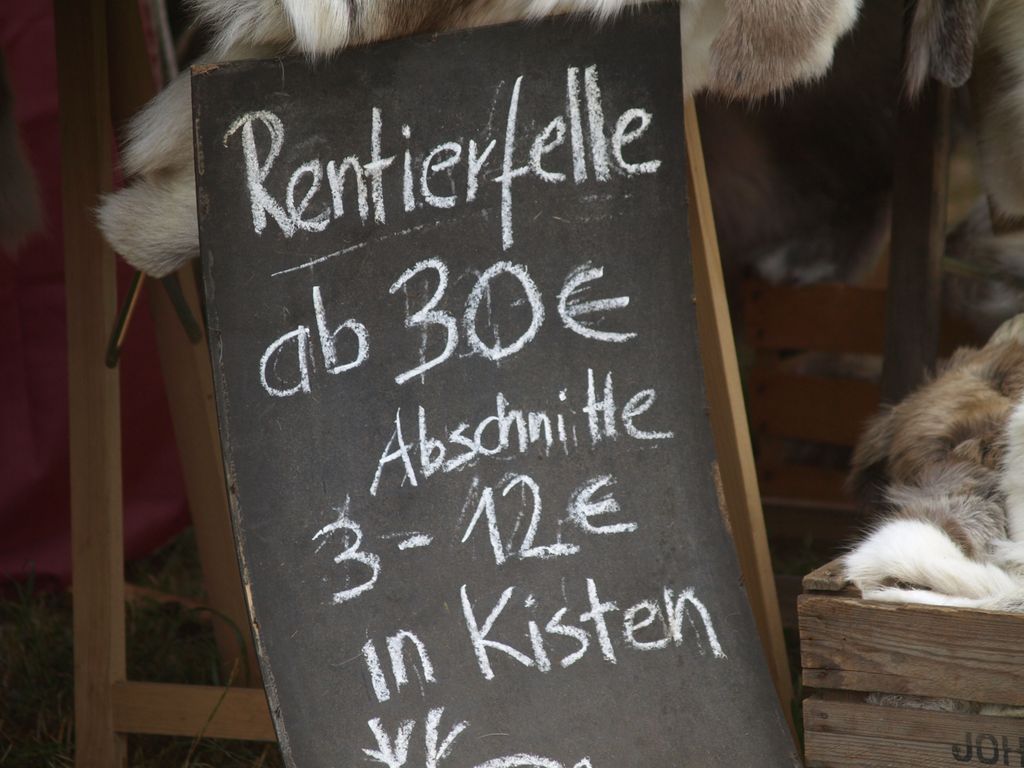 Rentierfelle
ab 30 €
Abschnitte
3 - 12 €
in Kisten
JOH